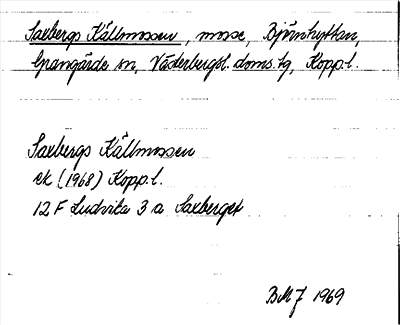 Saxbergs Källmossen, mosse, Björnhyttan,
Grangärde sn, Västerbergsl. doms.tg, Kopp.l.
Saxbergs Källmossen
ek (1968) Kopp.l.
12 F Ludvika 3 a Saxberget
BMJ 1969